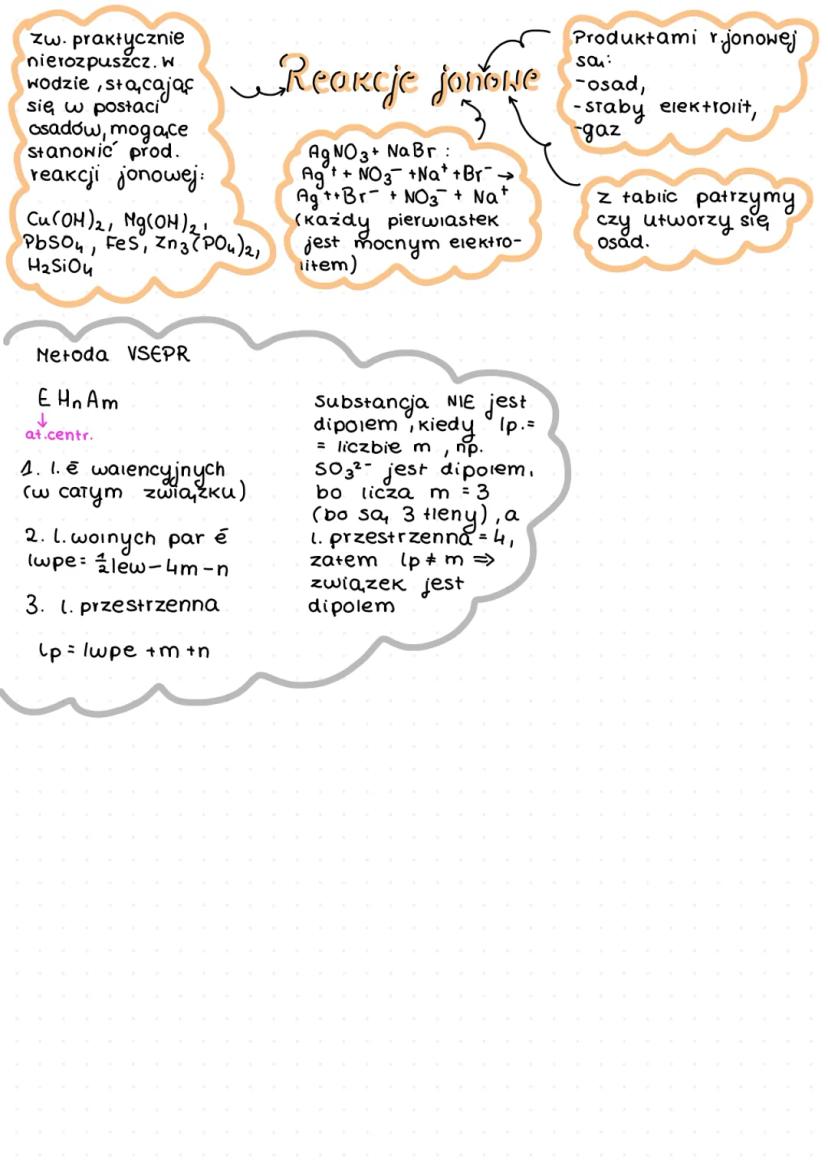 zw. praktycznie
nierozpuszcz. w
wodzie, strącając
się w postaci
osadów, mogące
stanowić prod.
reakcji jonowej:
Cu(OH)₂, Mg(OH)₂,
PbSO₄, FeS, Zn₃(PO₄)₂,
H₂SiO₄
Reakcje jonowe
AgNO₃ + NaBr :
Ag⁺ + NO₃⁻ + Na⁺ + Br⁻ →
Ag⁺ + Br⁻ + NO₃⁻ + Na⁺
(każdy pierwiastek
jest mocnym elektro-
litem)
Produktami r.jonowej
są:
-osad,
-słaby elektrolit,
-gaz
z tablic patrzymy
czy utworzy się
osad.
Metoda VSEPR
E Hn Am
↓
at.centr.
1. l. ē walencyjnych
(w całym związku)
2. l. wolnych par ē
lwpe = ½lew - 4m - n
3. l. przestrzenna
lp = lwpe + m + n
Substancja NIE jest
dipolem, kiedy lp. =
= liczbie m, np.
SO₃²⁻ jest dipolem,
bo licza m = 3
(bo są 3 tleny), a
l. przestrzenna = 4,
zatem lp ≠ m ⇒
związek jest
dipolem